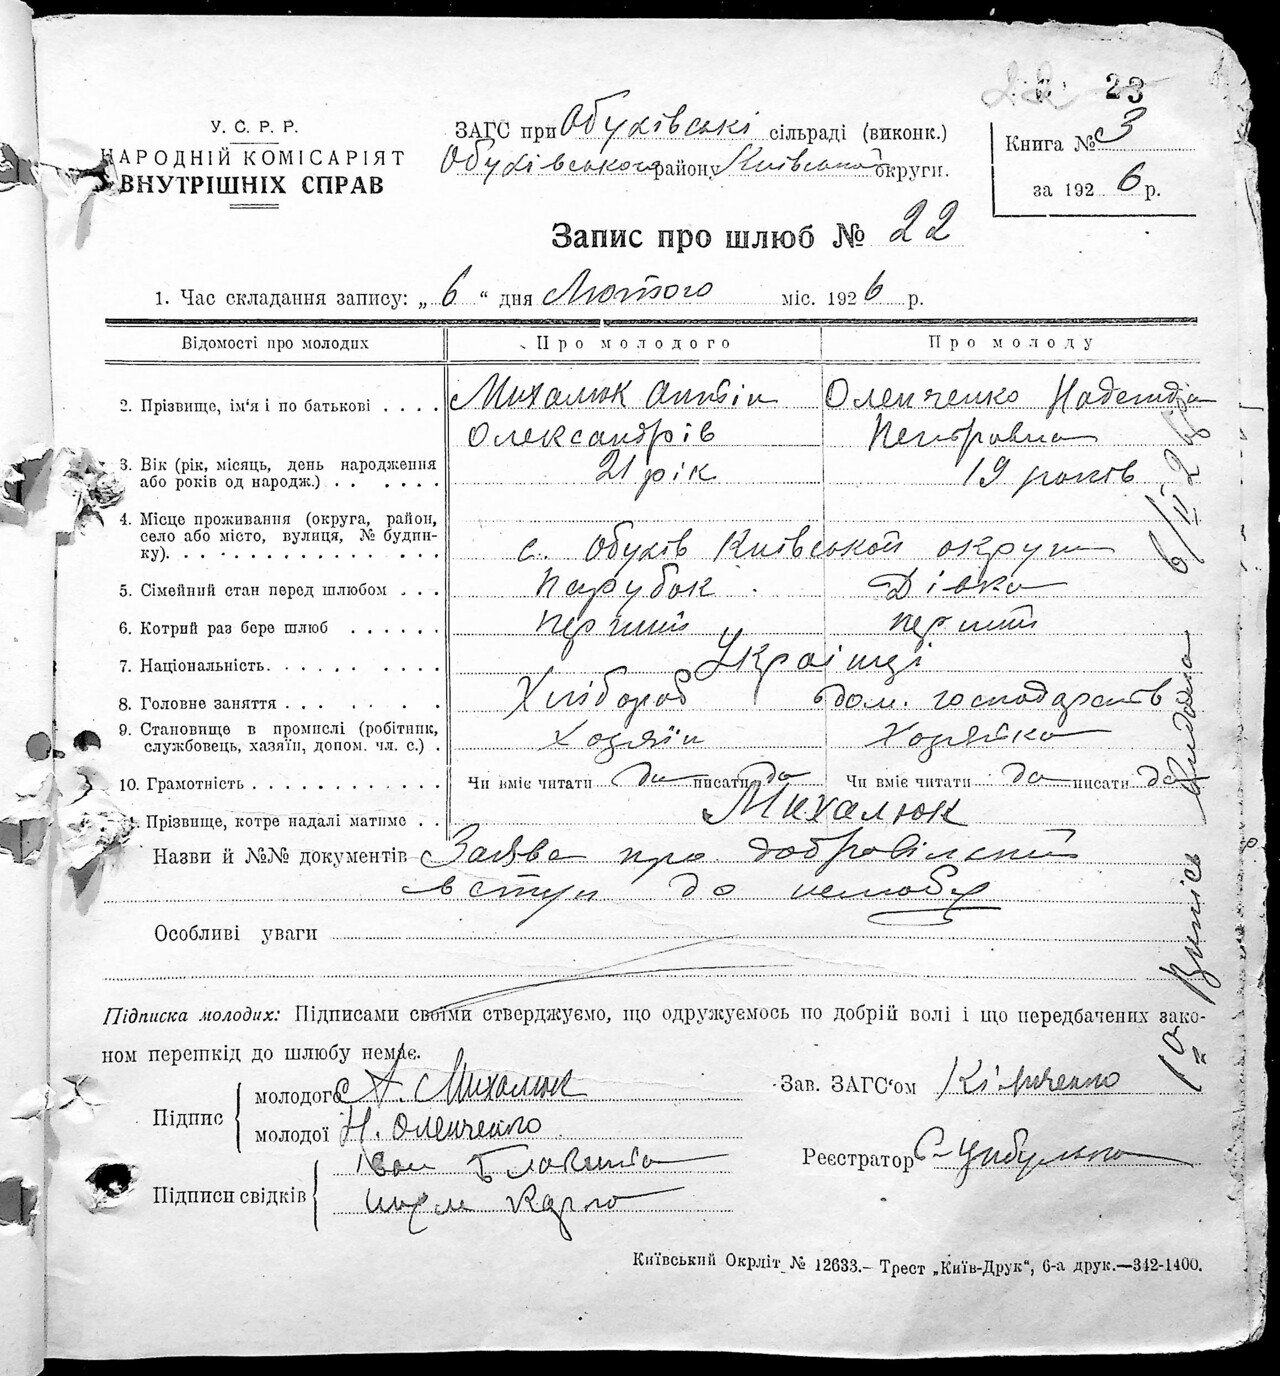 22 23
У. С. Р. Р.
НАРОДНІЙ КОМІСАРІЯТ
ВНУТРІШНІХ СПРАВ
ЗАГС при Обухівські сільраді (виконк.)
Обухівського району Київської округи.
Книга № 3
за 1926 р.
Запис про шлюб № 22
1. Час складання запису: „ 6 “ дня Лютого міс. 1926 р.
Відомості про молодих Про молодого Про молоду
2. Прізвище, ім'я і по батькові . . . . Михалюк Оленченко Надежда
Олександрів Петровна
3. Вік (рік, місяць, день народження 21 рік 19 років
або років од народж.) . . . . . .
4. Місце проживання (округа, район,
село або місто, вулиця, № будин-
ку). . . . . . . . . . . . . . . . с. Обухів Київської округи
5. Сімейний стан перед шлюбом . . . Парубок Дівка
6. Котрий раз бере шлюб . . . . . . перший перший
7. Національність. . . . . . . . . . Українці
8. Головне заняття . . . . . . . . Хлібороб дом. господарств
9. Становище в промислі (робітник,
службовець, хазяїн, допом. чл. с.) . Хозяїн Хозяйка
10. Грамотність . . . . . . . . . . . . Чи вміє читати да писати да Чи вміє читати да писати да
Прізвище, котре надалі матиме . . Михалюк
Назви й №№ документів Заява про добровільний
вступ до шлюбу
Особливі уваги
Підписка молодих: Підписами своїми стверджуємо, що одружуємось по добрій волі і що передбачених зако-
ном перешкід до шлюбу немає.
Підпис молодого А. Михалюк
молодої Н. Оленченко
Підписи свідків Іван
Зав. ЗАГС'ом Кільченко
Реєстратор С. Цибулько
1о Випись видана 6/II 26
Київський Окрліт № 12633.— Трест „Київ-Друк“, 6-а друк.—342-1400.